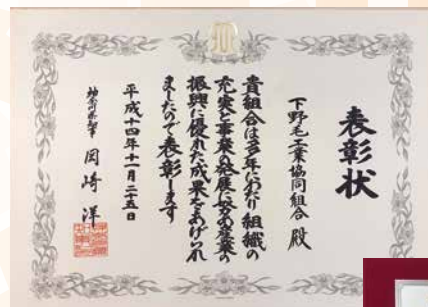 表彰状
下野毛工業協同組合 殿
貴組合は多年にわたり組織の
充実と事業の発展に努め産業の
振興に優れた成果をあげられ
ましたので表彰します
平成十四年十一月二十五日
神奈川県知事 岡崎 洋